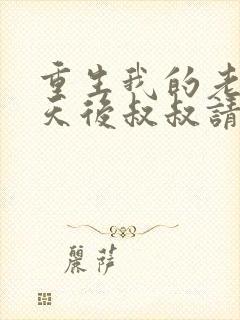 重生我的老
天後叔叔請
麗薩